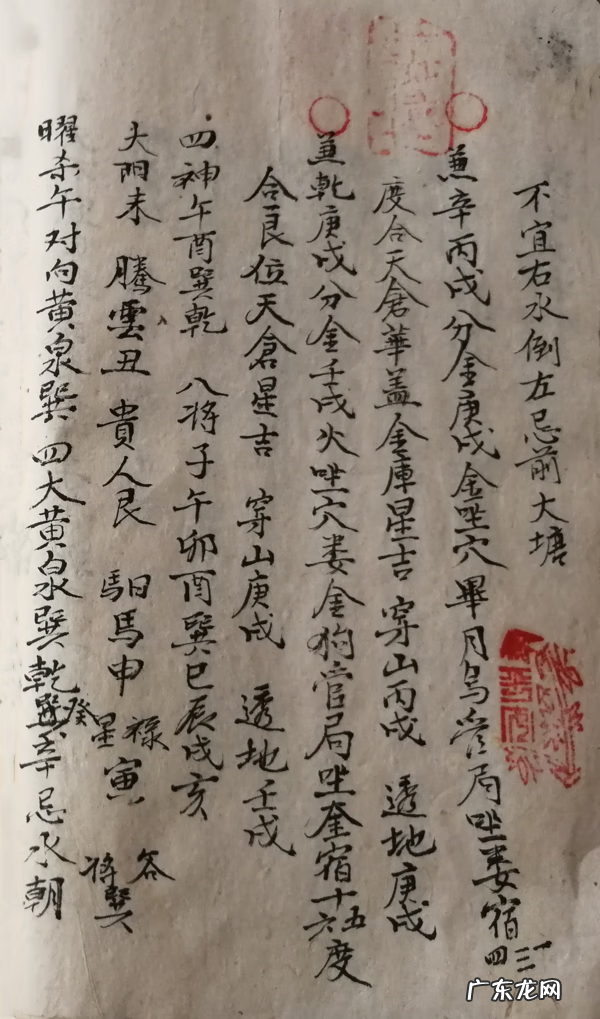 不宜右水倒左忌前大塘
兼辛丙戌分金庚戌金坐穴畢月乌管局坐娄宿一二三四
度合天倉華盖金庫星吉 穿山丙戌 透地庚戌
兼乾庚戌分金壬戌火坐穴娄金狗管局坐奎宿十五六度
合艮位天倉星吉 穿山庚戌 透地壬戌
四神午酉巽乾 八将子午卯酉巽巳辰戌亥
太阳未 騰雲丑 貴人艮 馹馬申 禄星寅 答将巽
曜杀午对向黄泉巽四大黄泉巽乾癸辛忌水朝
广东龙网